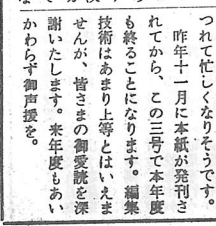 つれて忙しくなりそうです。
昨年十一月に本紙が発刊さ
れてから、この三号で本年度
も終ることになります。編集
技術はあまり上等とはいえま
せんが、皆さまの御愛読を深
謝いたします。来年度もあい
かわらず御声援を。